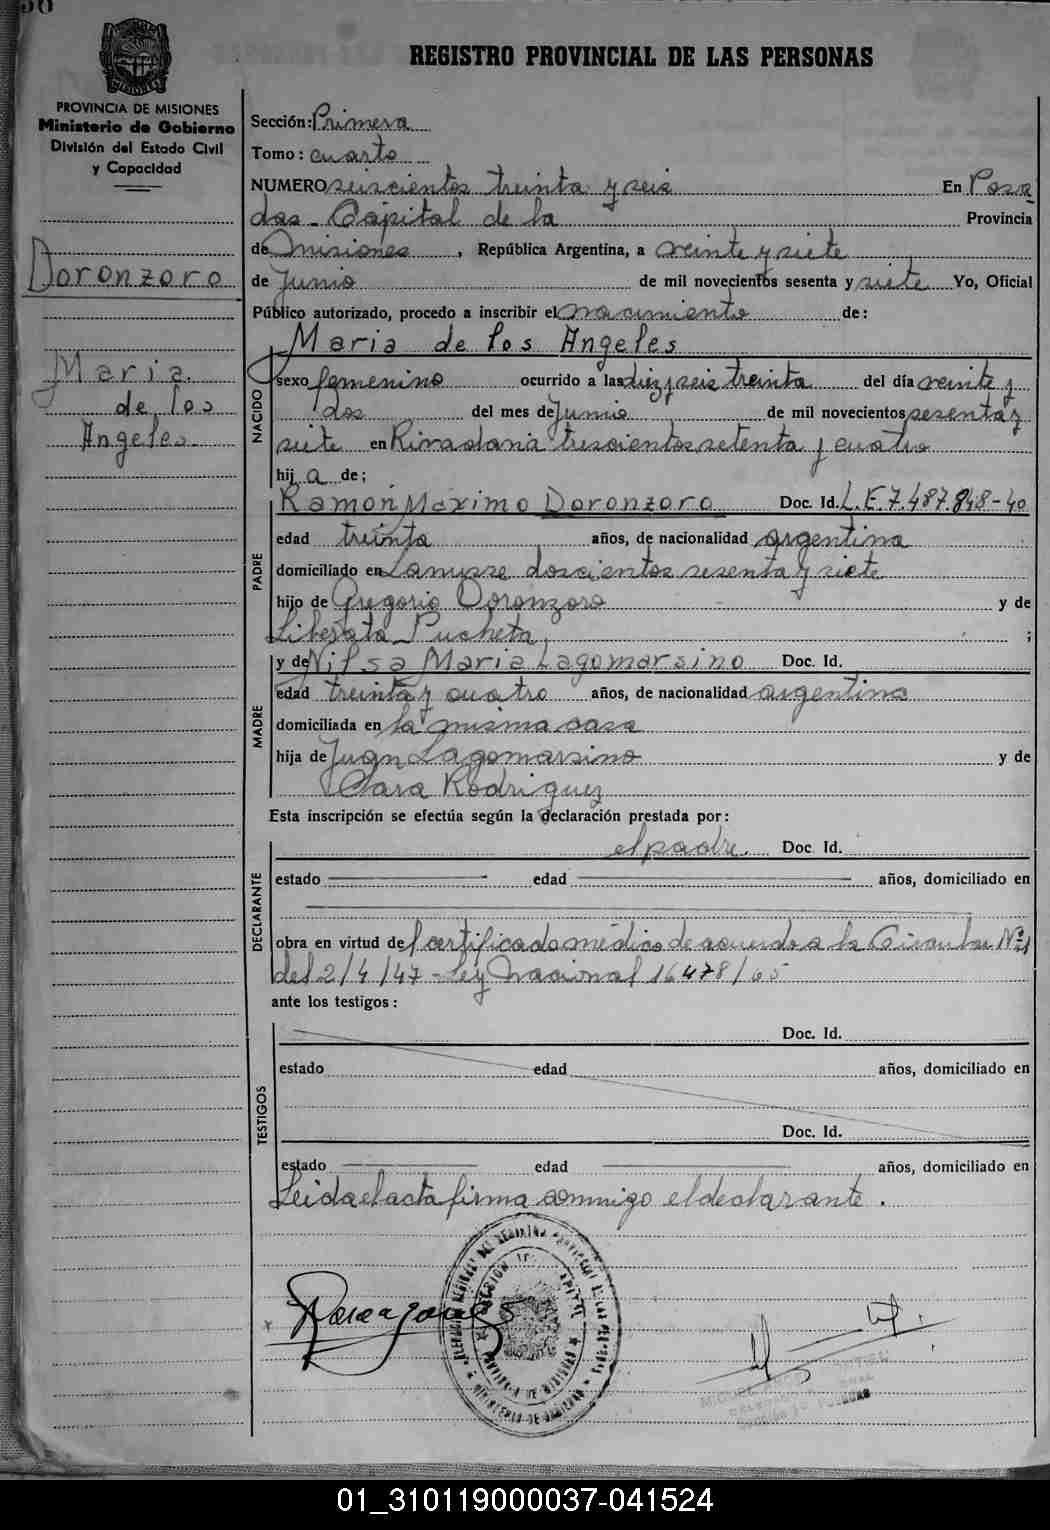 REGISTRO PROVINCIAL DE LAS PERSONAS
PROVINCIA DE MISIONES
Ministerio de Gobierno
División del Estado Civil
y Capacidad
Doronzoro
Maria
de los
Angeles
Sección: Primera
Tomo: cuarto
NUMERO seiscientos treinta y seis En Posa
das - Capital de la Provincia
de Misiones, República Argentina, a veinte y siete
de Junio de mil novecientos sesenta y siete Yo, Oficial
Público autorizado, procedo a inscribir el nacimiento de:
Maria de los Angeles
NACIDO
sexo femenino ocurrido a las diez y seis treinta del día veinte y
dos del mes de Junio de mil novecientos sesenta y
siete en Rivadavia trescientos setenta y cuatro
hij a de;
PADRE
Ramon Maximo Doronzoro Doc. Id. L.E. 7.487.848-40
edad treinta años, de nacionalidad argentina
domiciliado en Lanusse doscientos sesenta y siete
hijo de Gregorio Doronzoro y de
Liberata Pucheta ;
MADRE
y de Nilsa Maria Lagomarsino Doc. Id.
edad treinta y cuatro años, de nacionalidad argentina
domiciliada en la misma casa
hija de Juan Lagomarsino y de
Clara Rodriguez
Esta inscripción se efectúa según la declaración prestada por:
DECLARANTE
el padre Doc. Id.
estado edad años, domiciliado en
obra en virtud del certificado médico de acuerdo a la Circular Nº 1
del 2/4/47 - Ley Nacional 16478/65
ante los testigos:
TESTIGOS
Doc. Id.
estado edad años, domiciliado en
Doc. Id.
estado edad años, domiciliado en
Leida el acta firma conmigo el declarante.
PROVINCIA DE MISIONES
MINISTERIO DE GOBIERNO
01_310119000037-041524